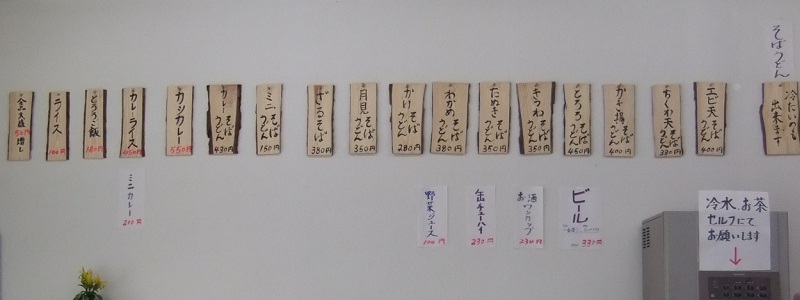 そばうどん
冷たいのも
出来ます
エビ天そばうどん
400円
ちくわ天そばうどん
380円
かき揚そばうどん
400円
とろろそばうどん
450円
きつねそばうどん
350円
たぬきそばうどん
350円
わかめそばうどん
380円
かけそばうどん
280円
月見そばうどん
350円
ざるそば
350円
ミニそばうどん
150円
カレーそばうどん
430円
カツカレー
550円
カレーライス
450円
とろろ飯
180円
ライス
100円
全品大盛
50円増し
ミニカレー
200円
ビール
330円
お酒ワンカップ
230円
缶チューハイ
230円
野菜ジュース
100円
冷水、お茶
セルフにて
お願いします
↓